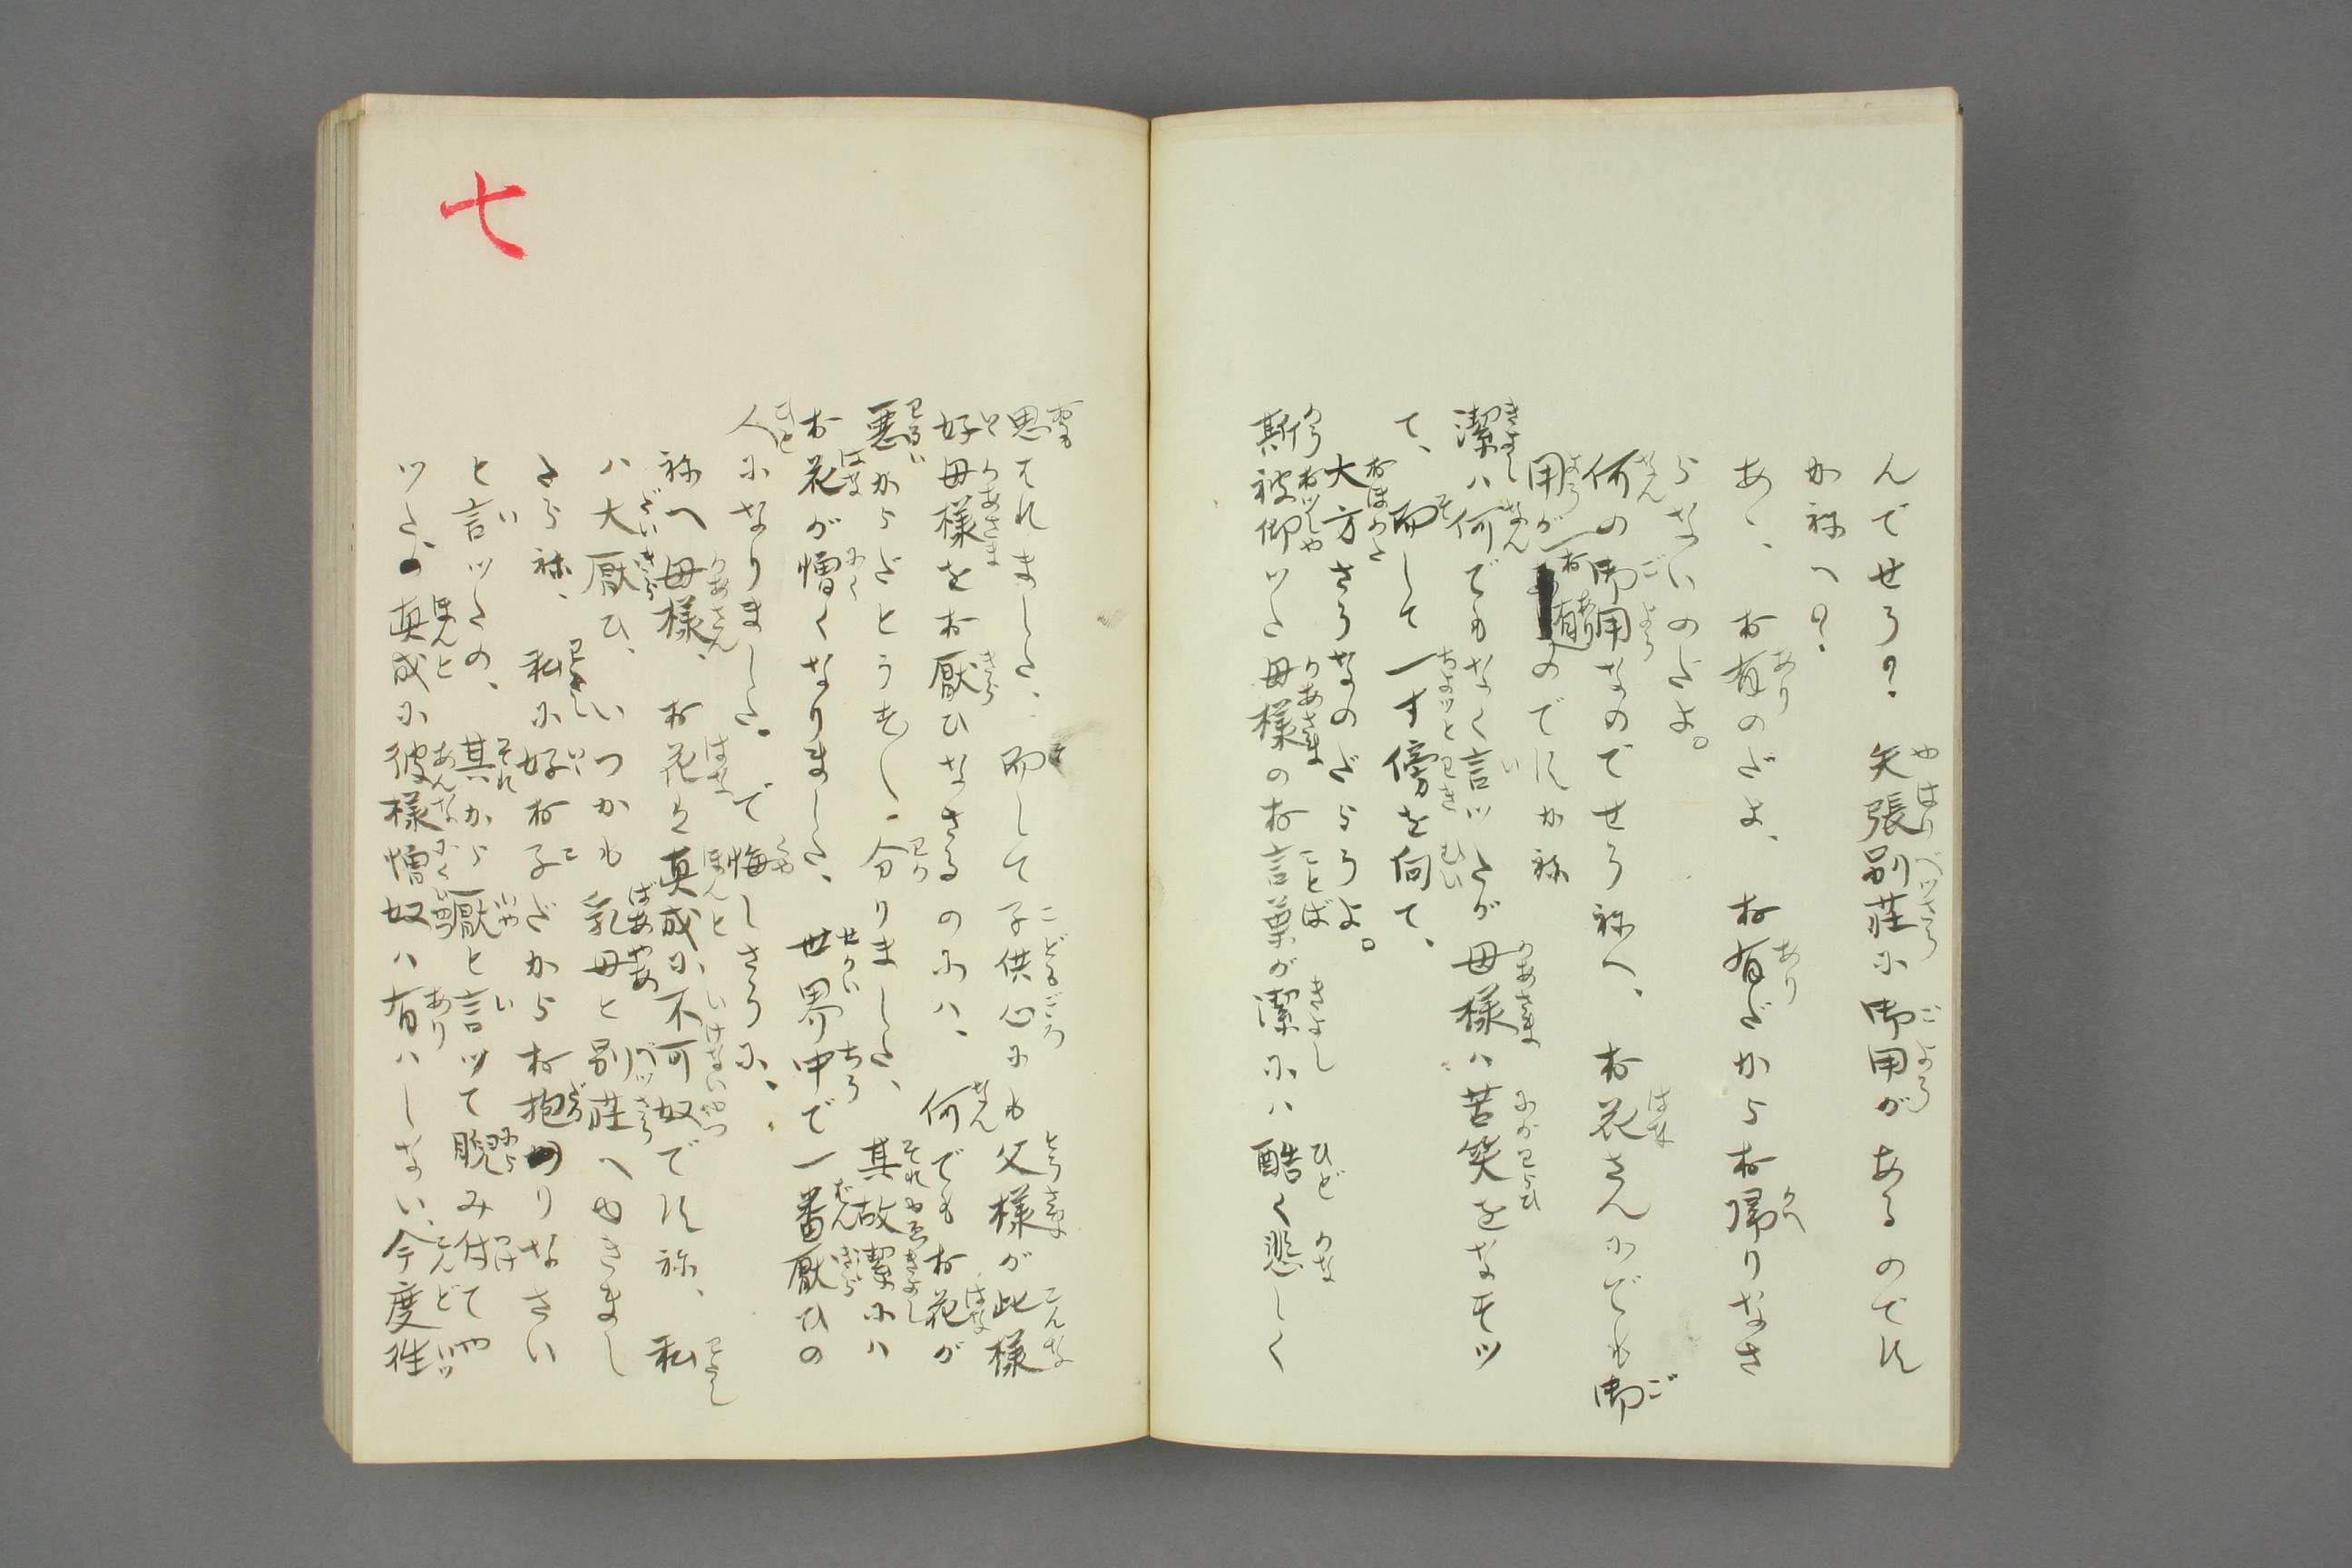 んでせう?　矢張別荘に御用があるのです
か祢へ?
あゝ、お有のだよ、お有だからお帰りなさ
らないのだよ。
何の御用なのでせう祢へ、お花さんにでも御
用がお有のですか祢
潔ハ何でもなく言ツたが母様ハ苦笑をなすツ
て、而して一寸傍を向て、
大方さうなのだらうよ。
斯被仰ツた母様のお言葉が潔にハ酷く悲しく
思はれました、而して子供心にも父様が此様
好母様をお厭ひなさるのにハ、何でもお花が
悪からだとうも〳〵分りました、其故潔にハ
お花が憎くなりました、世界中で一番厭ひの
人になりました。で悔しさうに、
祢へ母様、お花は真成に不可奴です祢、私
ハ大厭ひ、いつかも乳母と別荘へゆきまし
たら祢、私に好お子だからお抱りなさい
と言ツたの、其から厭と言ツて睨み付てや
ツた、真成に彼様憎奴ハ有ハしない、今度往
七